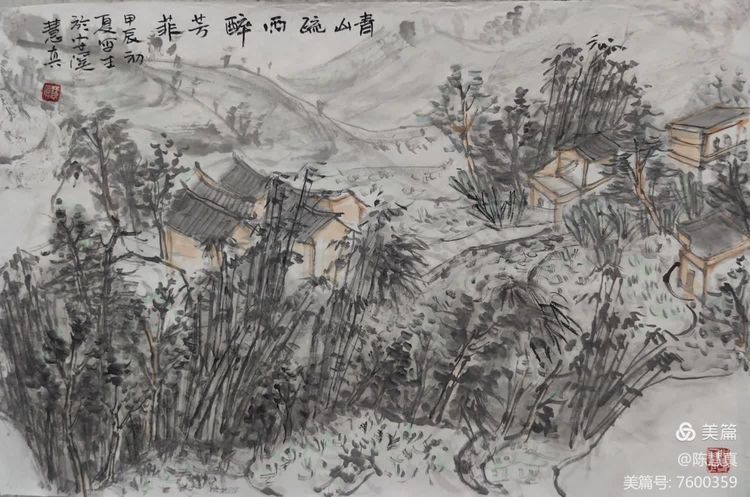 青山疏雨醉芳菲
甲辰初
夏写生
於安溪
慧真
美篇
@陈慧真
美篇号: 7600359